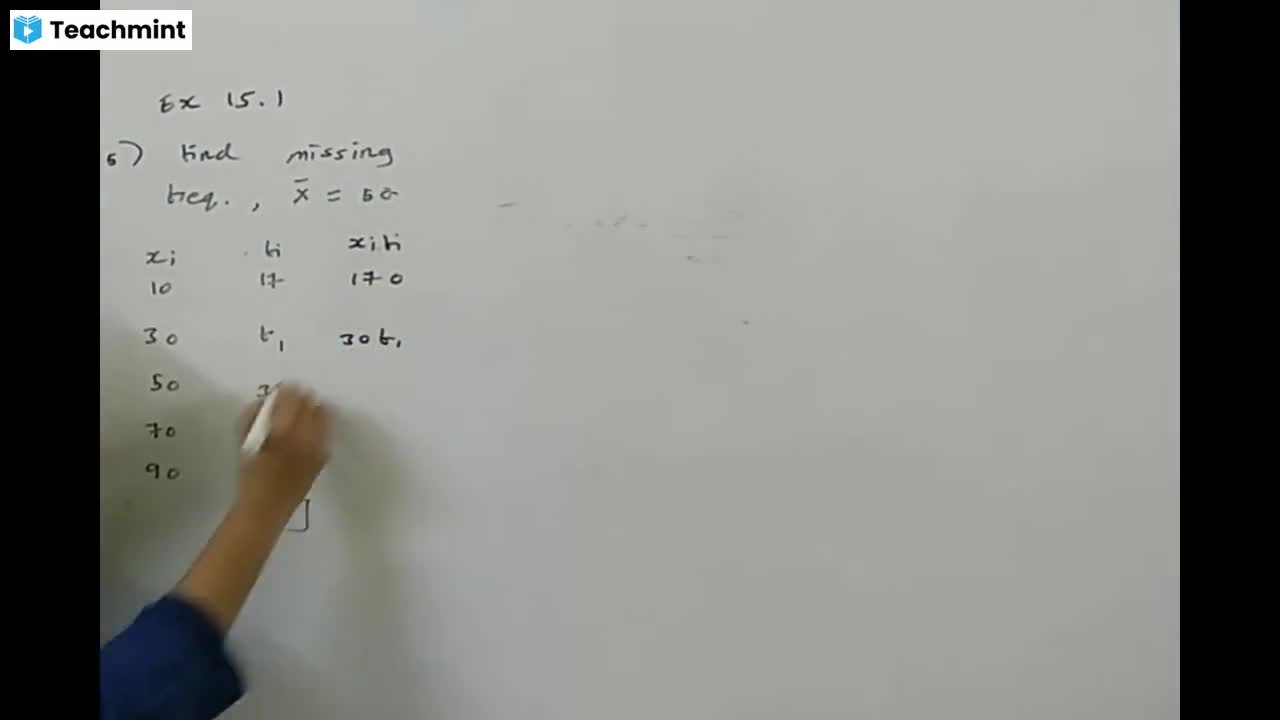 Teachmint
Ex 15.1
5) find missing
freq. , x̄ = 50
xi fi xifi
10 17 170
30 f1 30f1
50
70
90